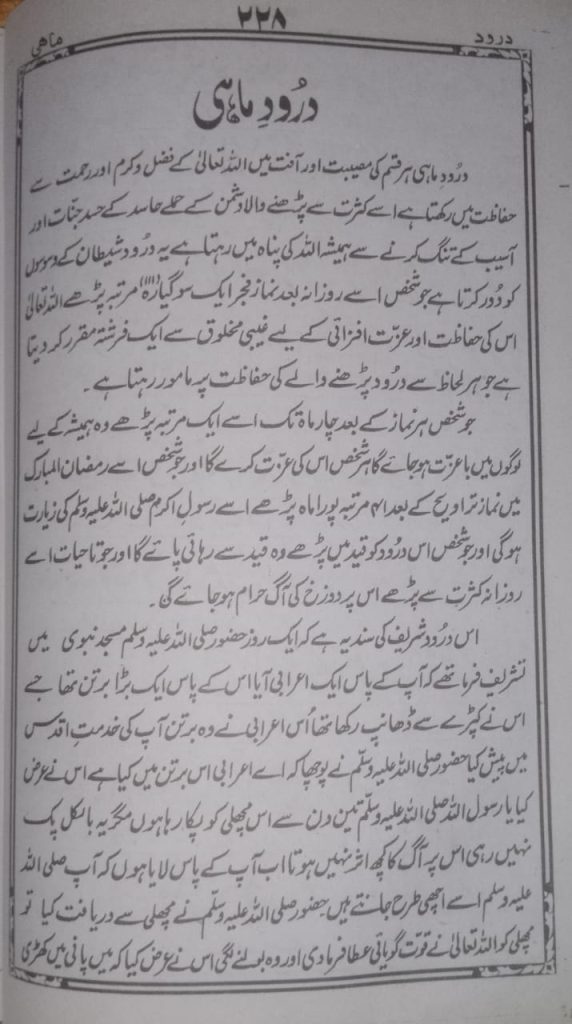 درود
۲۲۸
ماھی
درُودِ ماہی
درُود ماہی ہر قسم کی مصیبت اور آفت میں اللہ تعالیٰ کے فضل و کرم اور رحمت سے
حفاظت میں رکھتا ہے اسے کثرت سے پڑھنے والا دشمن کے حملے حاسد کے حسد جنّات اور
آسیب کے تنگ کرنے سے ہمیشہ اللہ کی پناہ میں رہتا ہے یہ درُود شیطان کے وسوسوں
کو دُور کرتا ہے جو شخص اسے روزانہ بعد نماز فجر ایک سو گیارہ (۱۱۱) مرتبہ پڑھے اللہ تعالیٰ
اس کی حفاظت اور عزّت افزائی کے لیے غیبی مخلوق سے ایک فرشتہ مقرر کر دیتا
ہے جو ہر لحاظ سے درُود پڑھنے والے کی حفاظت پر مامور رہتا ہے ۔
جو شخص ہر نماز کے بعد چار ماہ تک اسے ایک مرتبہ پڑھے وہ ہمیشہ کے لیے
لوگوں میں باعزت ہو جائے گا ہر شخص اس کی عزّت کرے گا اور جو شخص اسے رمضان المبارک
میں نماز تراویح کے بعد ۴۱ مرتبہ پورا ماہ پڑھے اسے رسول اکرم صلی اللہ علیہ وسلم کی زیارت
ہو گی اور جو شخص اس درُود کو قید میں پڑھے وہ قید سے رہائی پائے گا اور جو تاحیات اسے
روزانہ کثرت سے پڑھے اس پر دوزخ کی آگ حرام ہو جائے گی ۔
اس درُود شریف کی سند یہ ہے کہ ایک روز حضور صلی اللہ علیہ وسلم مسجد نبوی میں
تشریف فرما تھے کہ آپ کے پاس ایک اعرابی آیا اس کے پاس ایک بڑا برتن تھا جسے
اس نے کپڑے سے ڈھانپ رکھا تھا اُس اعرابی نے وہ برتن آپ کی خدمتِ اقدس
میں پیش کیا حضور صلی اللہ علیہ وسلّم نے پوچھا کہ اے اعرابی اس برتن میں کیا ہے اس نے عرض
کیا یا رسول اللہ صلی اللہ علیہ وسلّم تین دن سے اس مچھلی کو پکا رہا ہوں مگر یہ بالکل پک
نہیں رہی اس پر آگ کا کچھ اثر نہیں ہوتا اب آپ کے پاس لایا ہوں کہ آپ صلی اللہ
علیہ وسلم اسے اچھی طرح جانتے ہیں حضور صلی اللہ علیہ وسلّم نے مچھلی سے دریافت کیا تو
مچھلی کو اللہ تعالیٰ نے قوّت گویائی عطا فرما دی اور وہ بولنے لگی اس نے عرض کیا کہ میں پانی میں کھڑی